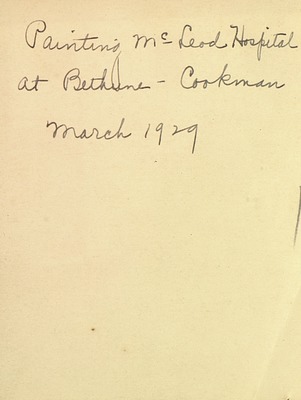 Painting McLeod Hospital
at Bethune - Cookman
March 1929